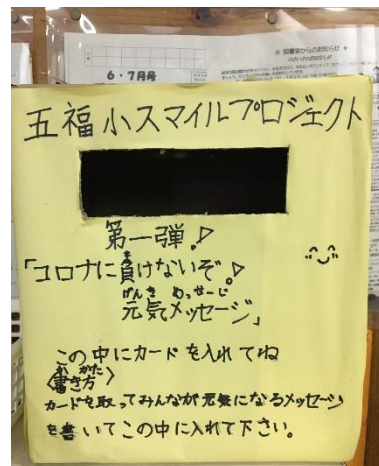 6・7月号
☆ 図書室からのお知らせ ☆
五福小スマイルプロジェクト
第一弾!
「コロナに負けないぞ!
ま
げんき めっせーじ
元気メッセージ」
この中にカードを入れてね
か かた
〈書き方〉
カードを取ってみんなが元気になるメッセージ
を書いてこの中に入れて下さい。